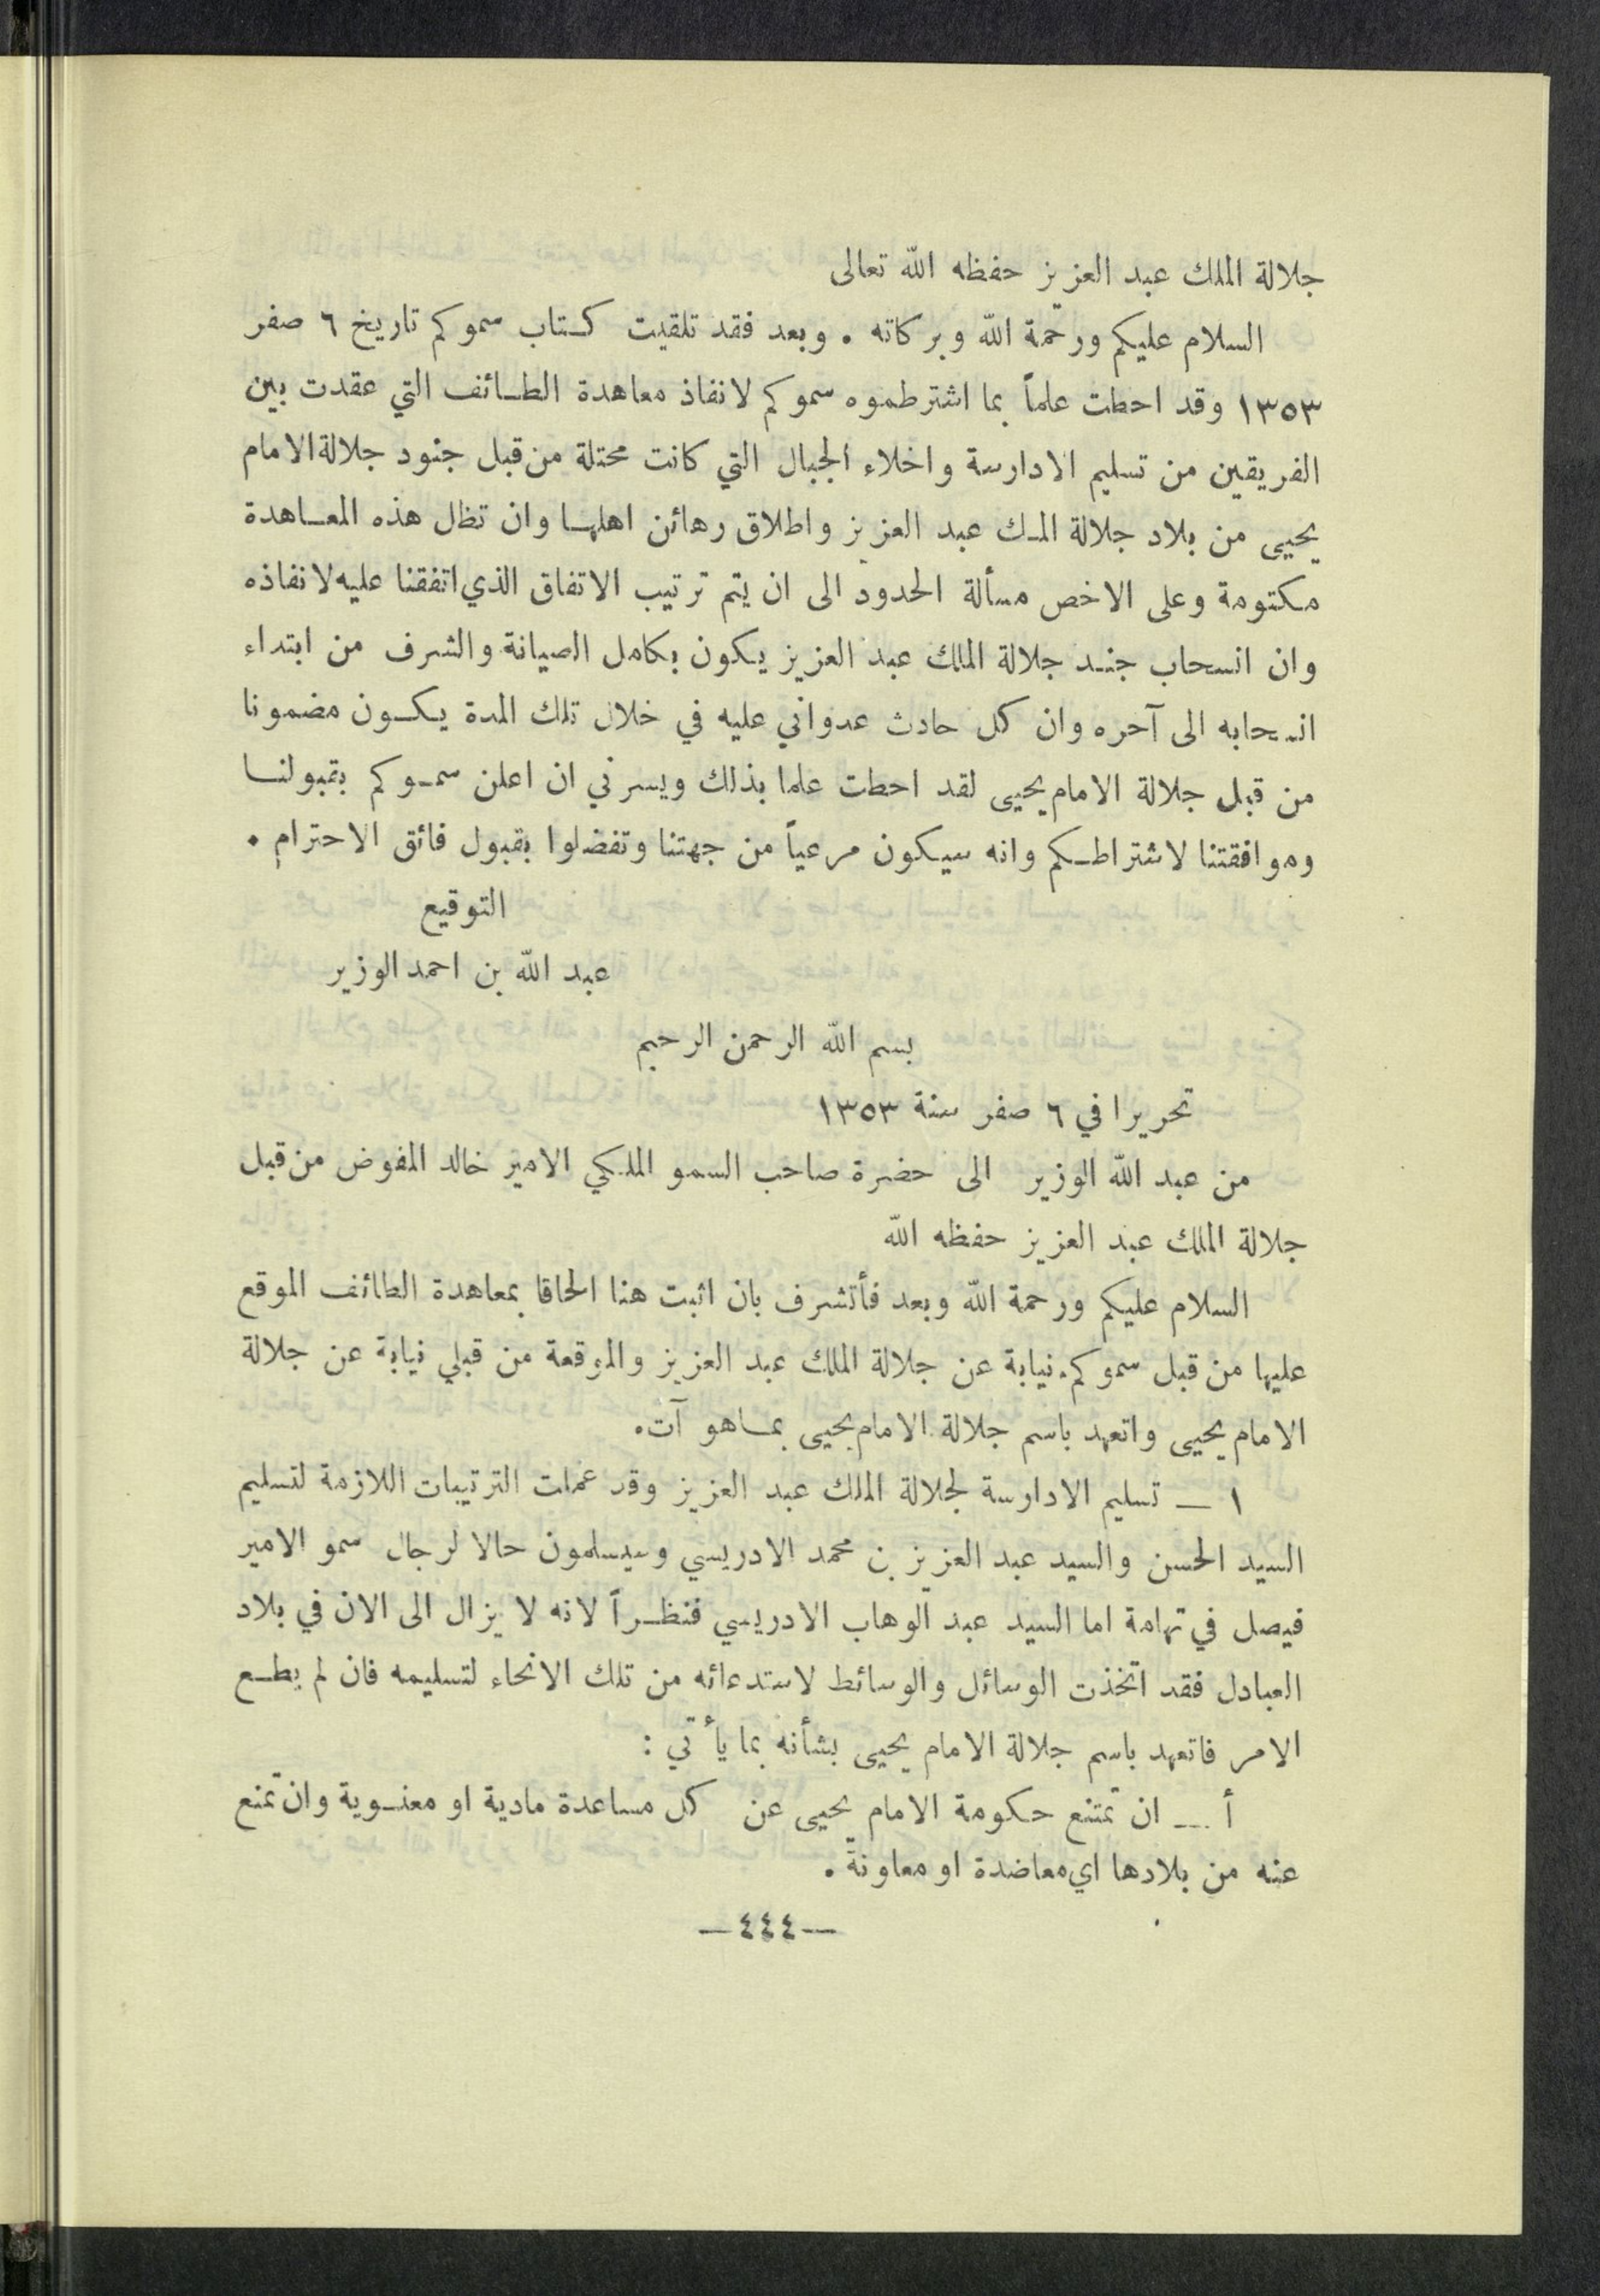 جلالة الملك عبد العزيز حفظه الله تعالى
السلام عليكم ورحمة الله وبركاته . وبعد فقد تلقيت كتاب سموكم تاريخ ٦ صفر
١٣٥٣ وقد احطت علماً بما اشترطموه سموكم لانفاذ معاهدة الطائف التي عقدت بين
الفريقين من تسليم الادارسة واخلاء الجبال التي كانت محتلة من قبل جنود جلالة الامام
يحيى من بلاد جلالة الملك عبد العزيز واطلاق رهائن اهلها وان تظل هذه المعاهدة
مكتومة وعلى الاخص مسألة الحدود الى ان يتم ترتيب الاتفاق الذي اتفقنا عليه لانفاذه
وان انسحاب جند جلالة الملك عبد العزيز يكون بكامل الصيانة والشرف من ابتداء
انسحابه الى آخره وان كل حادث عدواني عليه في خلال تلك المدة يكون مضمونا
من قبل جلالة الامام يحيى لقد احطت علما بذلك ويسرني ان اعلن سموكم بقبولنا
وموافقتنا لاشتراطكم وانه سيكون مرعياً من جهتنا وتفضلوا بقبول فائق الاحترام .
التوقيع
عبد الله بن احمد الوزير
بسم الله الرحمن الرحيم
تحريرا في ٦ صفر سنة ١٣٥٣
من عبد الله الوزير الى حضرة صاحب السمو الملكي الامير خالد المفوض من قبل
جلالة الملك عبد العزيز حفظه الله
السلام عليكم ورحمة الله وبعد فأتشرف بان اثبت هنا الحاقا بمعاهدة الطائف الموقع
عليها من قبل سموكم نيابة عن جلالة الملك عبد العزيز والموقعة من قبلي نيابة عن جلالة
الامام يحيى واتعهد باسم جلالة الامام يحيى بماهو آت.
١ — تسليم الادارسة لجلالة الملك عبد العزيز وقد عملت الترتيبات اللازمة لتسليم
السيد الحسن والسيد عبد العزيز بن محمد الادريسي وسيسلمون حالا لرجال سمو الامير
فيصل في تهامة اما السيد عبد الوهاب الادريسي فنظراً لانه لا يزال الى الان في بلاد
العبادل فقد اتخذت الوسائل والوسائط لاستدعائه من تلك الانحاء لتسليمه فان لم يطع
الامر فاتعهد باسم جلالة الامام يحيى بشأنه بما يأتي :
أ — ان تمتنع حكومة الامام يحيى عن كل مساعدة مادية او معنوية وان تمنع
عنه من بلادها اي معاضدة او معاونة .
—٤٤٤—